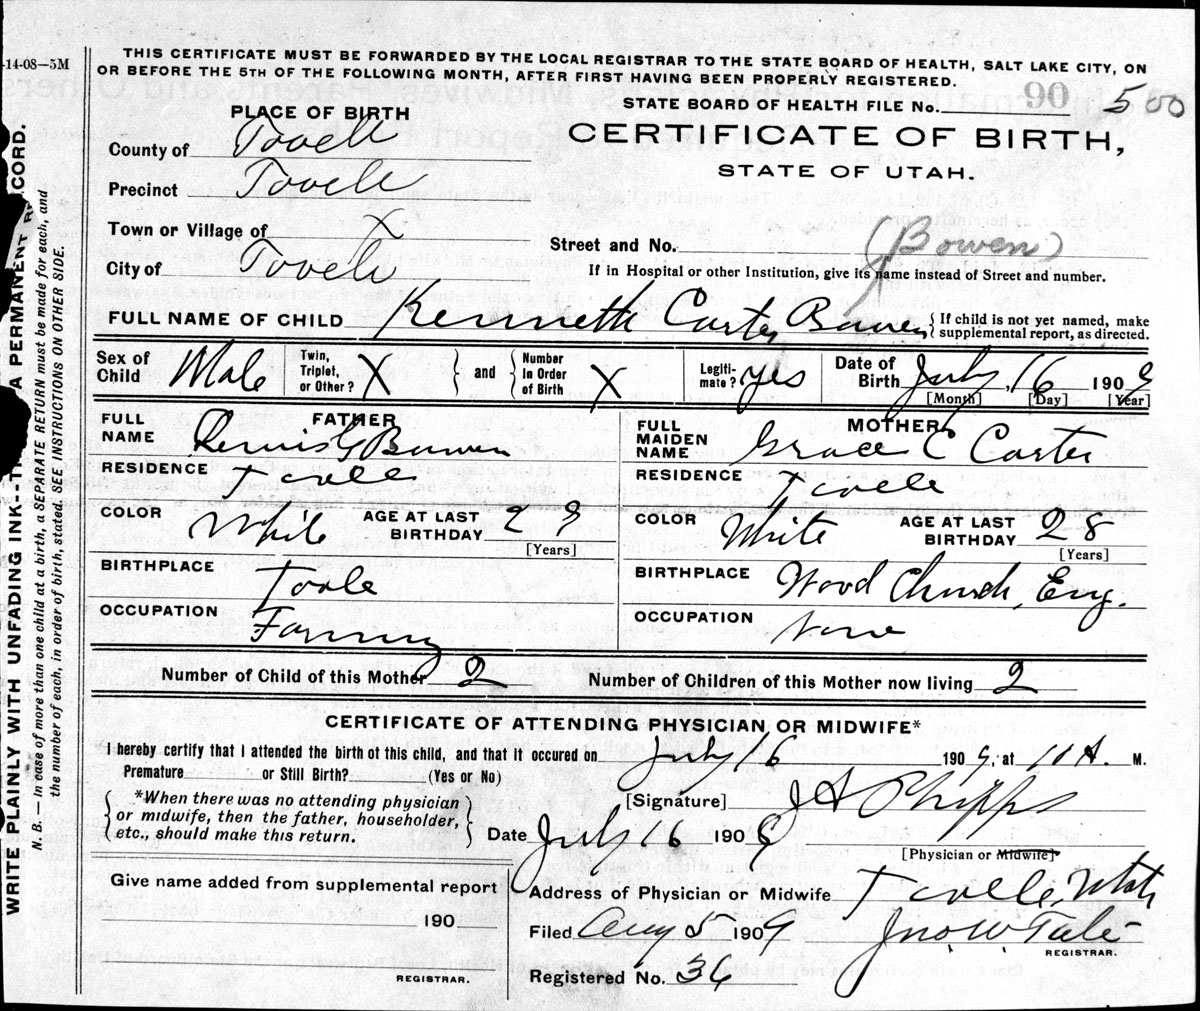 -14-08-5M
THIS CERTIFICATE MUST BE FORWARDED BY THE LOCAL REGISTRAR TO THE STATE BOARD OF HEALTH, SALT LAKE CITY, ON
OR BEFORE THE 5TH OF THE FOLLOWING MONTH, AFTER FIRST HAVING BEEN PROPERLY REGISTERED.
STATE BOARD OF HEALTH FILE No. 90 500
PLACE OF BIRTH
CERTIFICATE OF BIRTH,
STATE OF UTAH.
County of Tooele
Precinct Tooele
Town or Village of X
City of Tooele
Street and No.
(Bowen)
If in Hospital or other Institution, give its name instead of Street and number.
FULL NAME OF CHILD Kenneth Carter Bowen { If child is not yet named, make
supplemental report, as directed.
Sex of Child Male
Twin, Triplet, or Other? X
} and {
Number in Order of Birth X
Legiti-mate? yes
Date of Birth July, 16 1909
[Month] [Day] [Year]
FATHER
FULL NAME G Bowen
RESIDENCE Tooele
COLOR White AGE AT LAST BIRTHDAY 29
[Years]
BIRTHPLACE Tooele
OCCUPATION Farming
MOTHER
FULL MAIDEN NAME Grace C Carter
RESIDENCE Tooele
COLOR White AGE AT LAST BIRTHDAY 28
[Years]
BIRTHPLACE Wood Church, Eng.
OCCUPATION None
Number of Child of this Mother 2 Number of Children of this Mother now living 2
CERTIFICATE OF ATTENDING PHYSICIAN OR MIDWIFE*
I hereby certify that I attended the birth of this child, and that it occured on July 16 1909, at 10 A. M.
Premature or Still Birth? (Yes or No)
{ *When there was no attending physician
or midwife, then the father, householder,
etc., should make this return. }
[Signature] J A Phipps
Date July 16 1909
[Physician or Midwife]
Give name added from supplemental report
190
REGISTRAR.
Address of Physician or Midwife Tooele, Utah
Filed Aug 5 1909 Jno. W. Tate
REGISTRAR.
Registered No. 36
WRITE PLAINLY WITH UNFADING INK—TH A PERMANENT RECORD.
N. B.—In case of more than one child at a birth, a SEPARATE RETURN must be made for each, and
the number of each, in order of birth, stated. SEE INSTRUCTIONS ON OTHER SIDE.